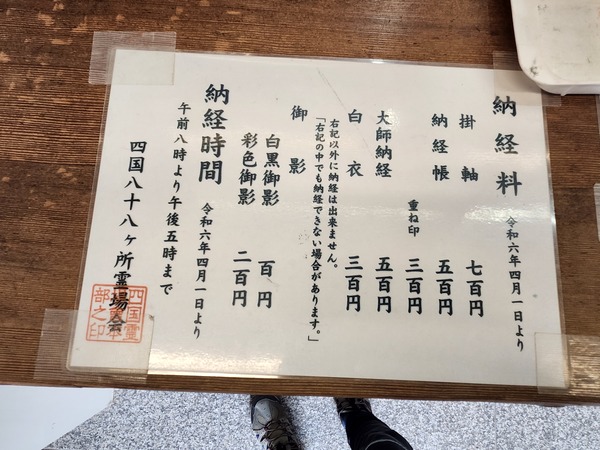 納経料 令和六年四月一日より
掛軸 七百円
納経帳 五百円
重ね印 三百円
大師納経 五百円
白衣 三百円
右記以外に納経は出来ません。
「右記の中でも納経できない場合があります。」
御影
白黒御影 百円
彩色御影 二百円
納経時間 令和六年四月一日より
午前八時より午後五時まで
四国八十八ヶ所霊場会
四国霊
部之印